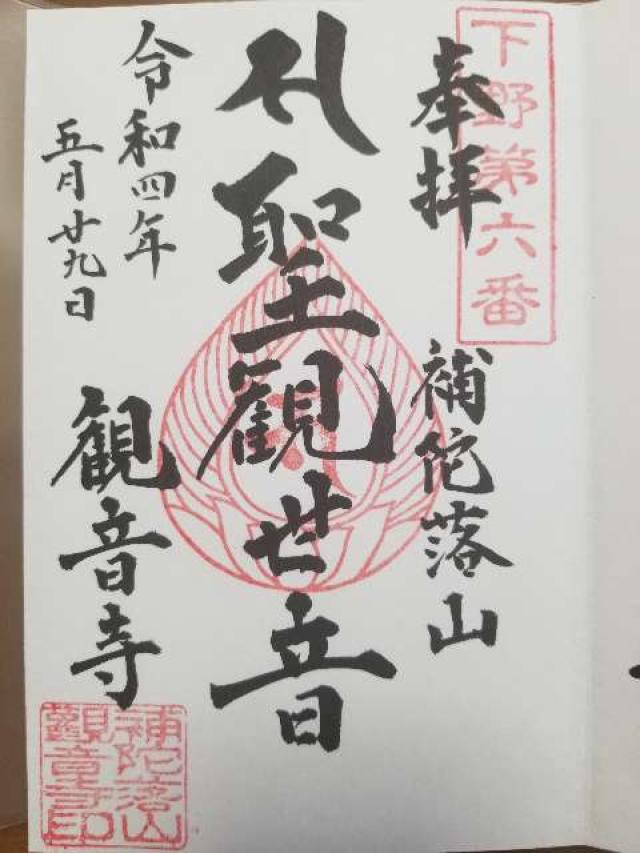 下野第六番
奉拝
補陀落山
聖観世音
令和四年
五月廿九日
観音寺
補陀落山
觀音寺印